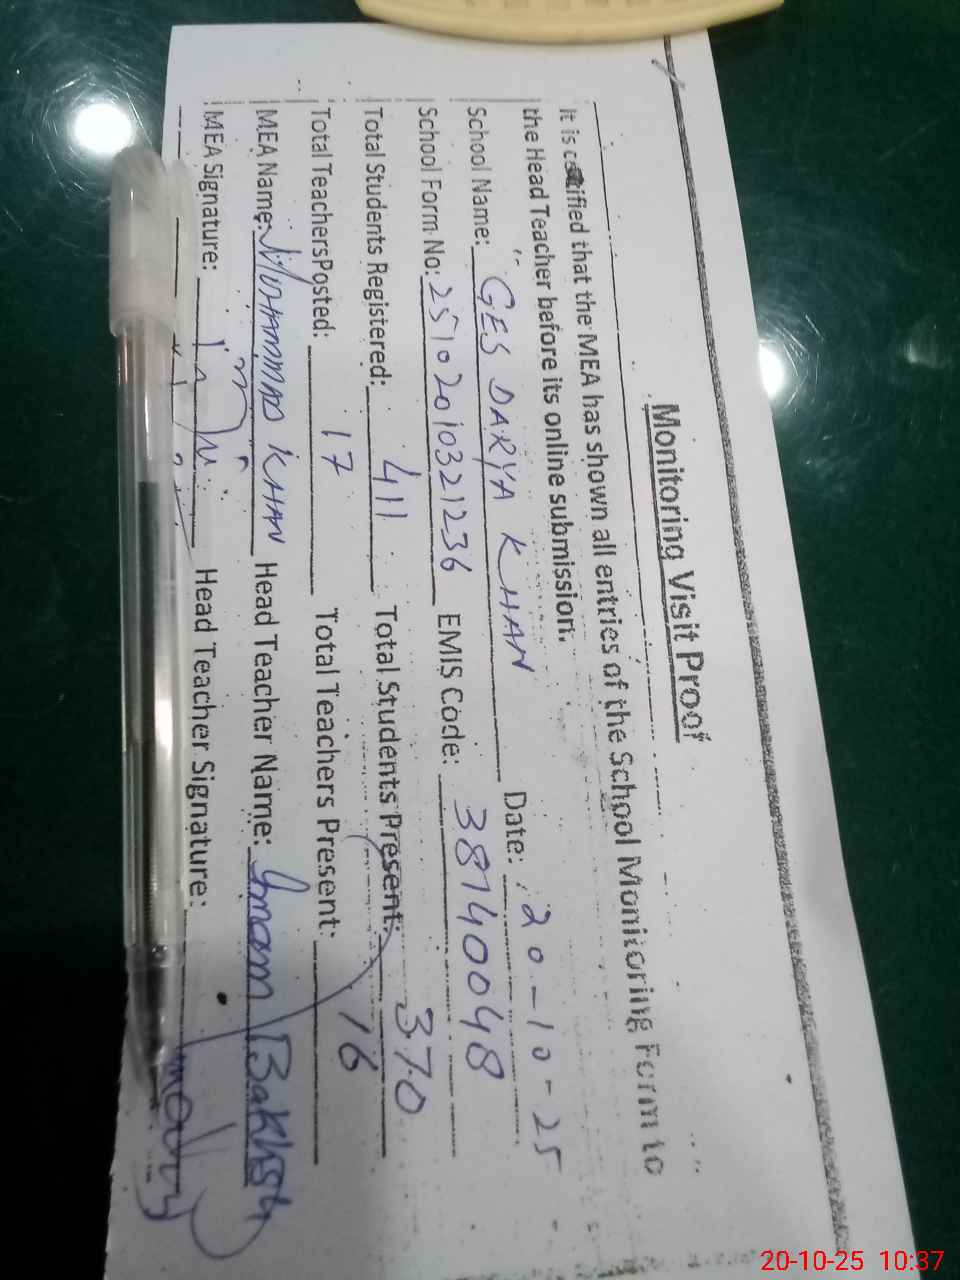 Monitoring Visit Proof
It is certified that the MEA has shown all entries of the School Monitoring Form to
the Head Teacher before its online submission.
School Name: GES DARYA KHAN Date: 20-10-25
School Form No: 25102010321236 EMIS Code: 38140048
Total Students Registered: 411 Total Students Present: 370
Total Teachers Posted: 17 Total Teachers Present: 16
MEA Name: MOHAMMAD KHAN Head Teacher Name: Imam Bakhsh
MEA Signature: Head Teacher Signature:
20-10-25 10:37